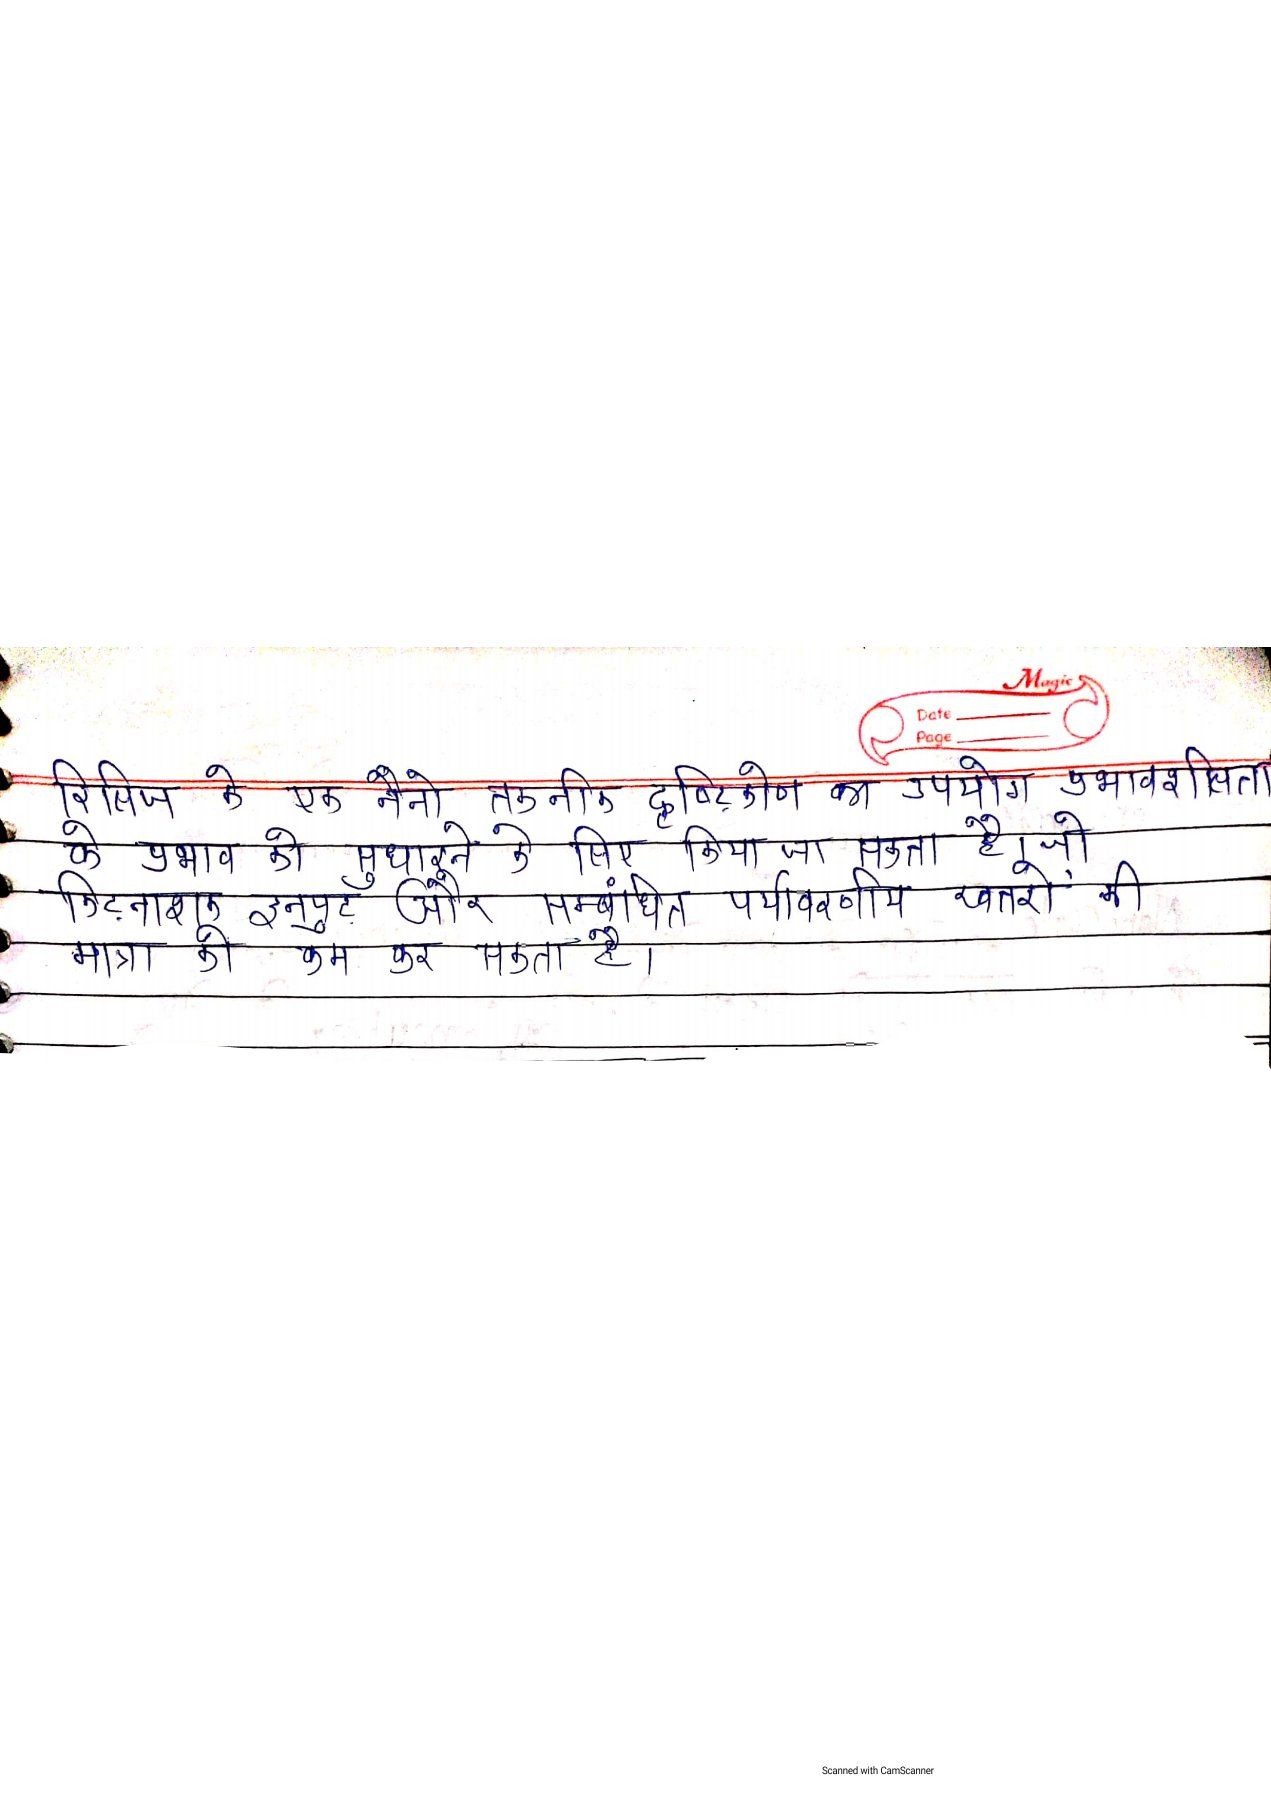 Magic
Date
Page
रिलिज के एक नैनो तकनीक दृष्टिकोण का उपयोग प्रभावशीलता
के प्रभाव को सुधारने के लिए किया जा सकता है। जो
किटनाशक इनपुट और सम्बंधित पर्यावरणीय खतरों की
मात्रा को कम कर सकता है।
Scanned with CamScanner